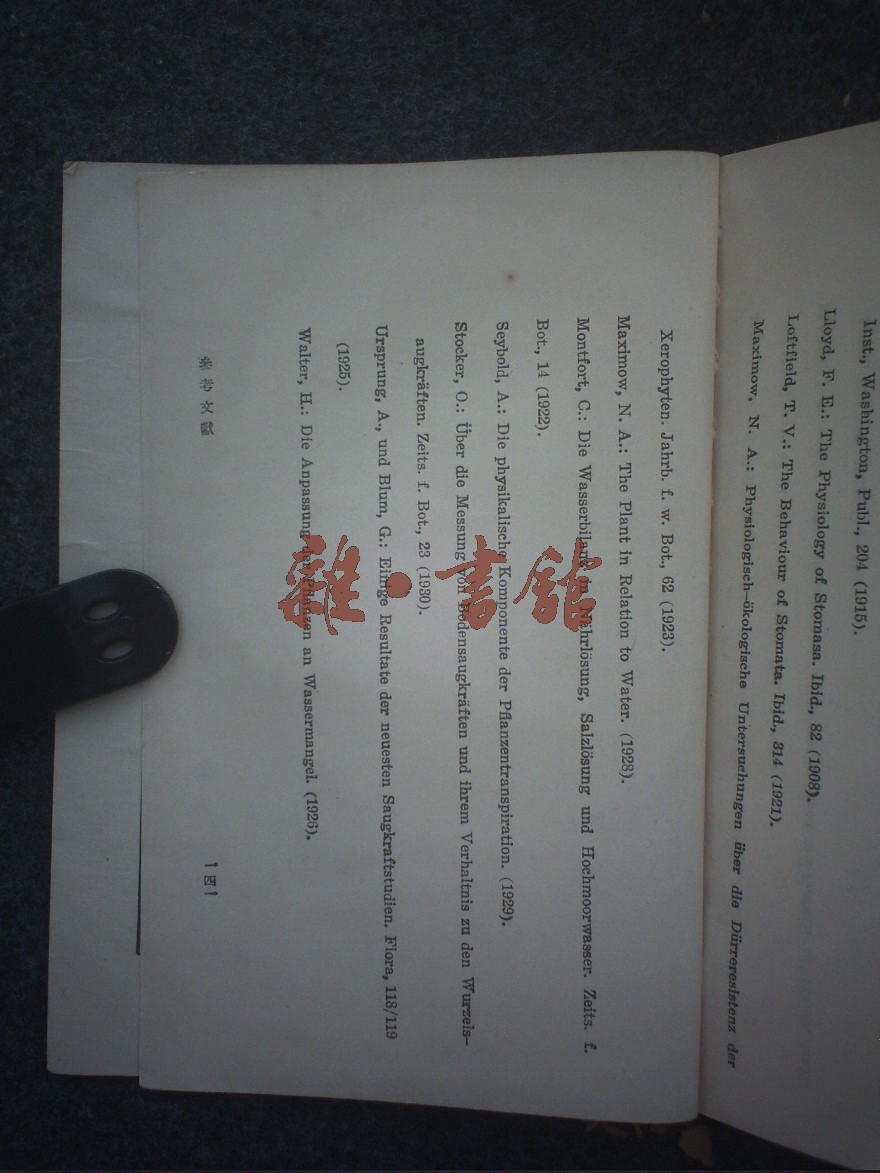 Inst., Washington, Publ., 204 (1915).
Lloyd, F. E.: The Physiology of Stomasa. Ibid., 82 (1908).
Loftfield, T. V.: The Behaviour of Stomata. Ibid., 314 (1921).
Maximow, N. A.: Physiologisch-ökologische Untersuchungen über die Dürreresistenz der
Xerophyten. Jahrb. f. w. Bot., 62 (1923).
Maximow, N. A.: The Plant in Relation to Water. (1928).
Montfort, C.: Die Wasserbilanz in Nährlösung, Salzlösung und Hochmoorwasser. Zeits. f.
Bot., 14 (1922).
Seybold, A.: Die physikalische Komponente der Pflanzentranspiration. (1929).
Stocker, O.: Über die Messung von Bodensaugkräften und ihrem Verhaltnis zu den Wurzels-
augkräften. Zeits. f. Bot., 23 (1930).
Ursprung, A., und Blum, G.: Einige Resultate der neuesten Saugkraftstudien. Flora, 118/119
(1925).
Walter, H.: Die Anpassung der Pflanzen an Wassermangel. (1926).